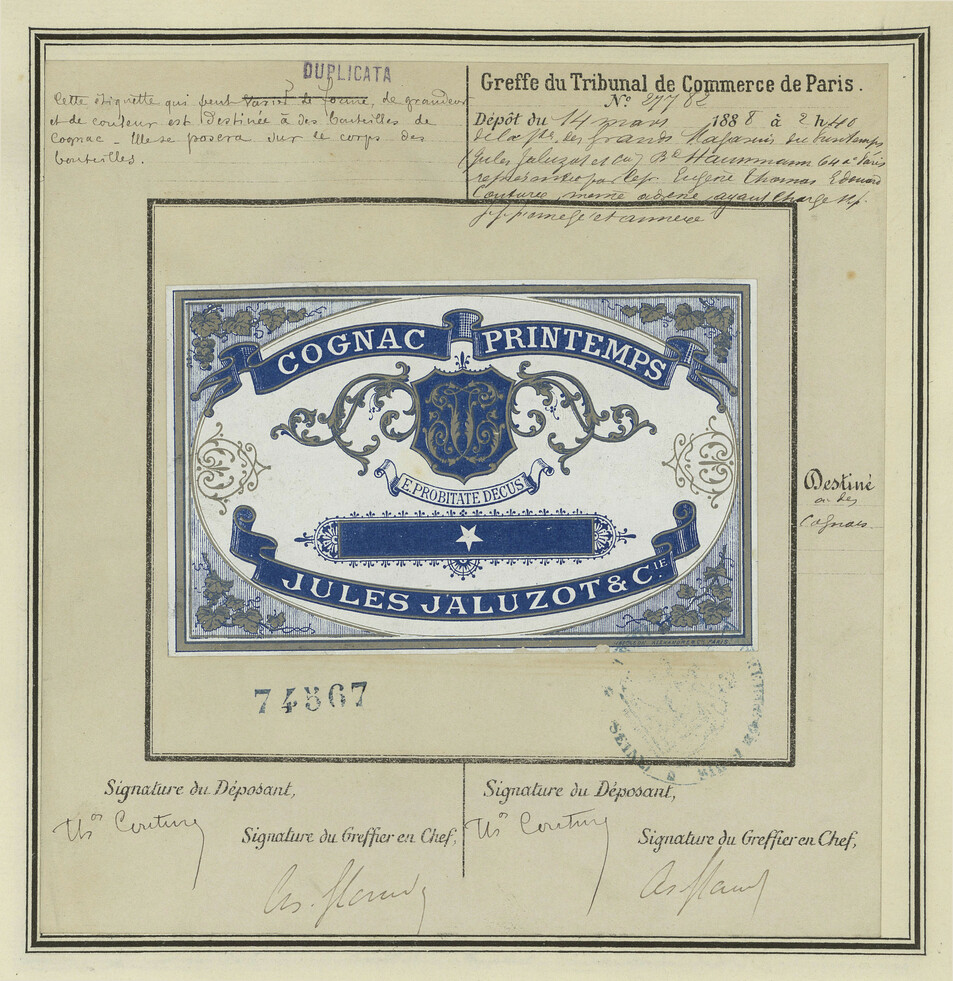 DUPLICATA
Cette étiquette qui peut varier de forme, de grandeur
et de couleur est destinée à des bouteilles de
Cognac - Elle se posera sur le corps des
bouteilles.
Greffe du Tribunal de Commerce de Paris.
N° 27762
Dépôt du 14 mars 1888 à 2h40
de la Sté des Grands Magasins du Printemps
(Jules Jaluzot et Cie) Bd Haussmann 64 à Paris
représentée par le Sr Eugène Thomas Edouard
Couture même adresse ayant charge
et annexé
COGNAC PRINTEMPS
E PROBITATE DECUS
JULES JALUZOT & CIE
PARIS
Destiné
à des
Cognacs
74567
SEINE
Signature du Déposant,
Ths Couture
Signature du Greffier en Chef,
Signature du Déposant,
Ths Couture
Signature du Greffier en Chef,